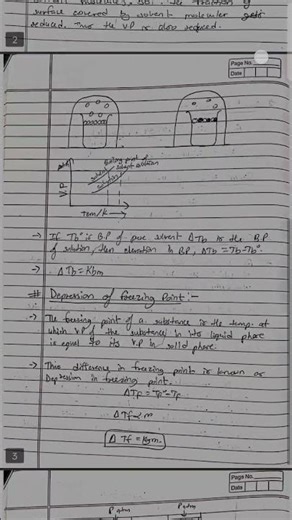 surface covered by solvent molecules gets
reduced. Thus the VP is also reduced.
2
Page No.
Date
Boiling point of
solvent
solution
V.P
Tem/K →
→ If Tb° is B.P of pure solvent ΔTb is the B.P
of solution, then elevation in B.P, ΔTb = Tb-Tb°
→ ΔTb = Kbm
# Depression of freezing Point :-
→ The freezing point of a substance is the temp. at
which V.P of the substance in its liquid phase
is equal to its V.P in solid phase.
→ This difference in freezing point is known as
Depression in freezing point.
ΔTf = Tf° - Tf
ΔTf ∝ m
Δ Tf = Kfm.
3
Page No.
Date